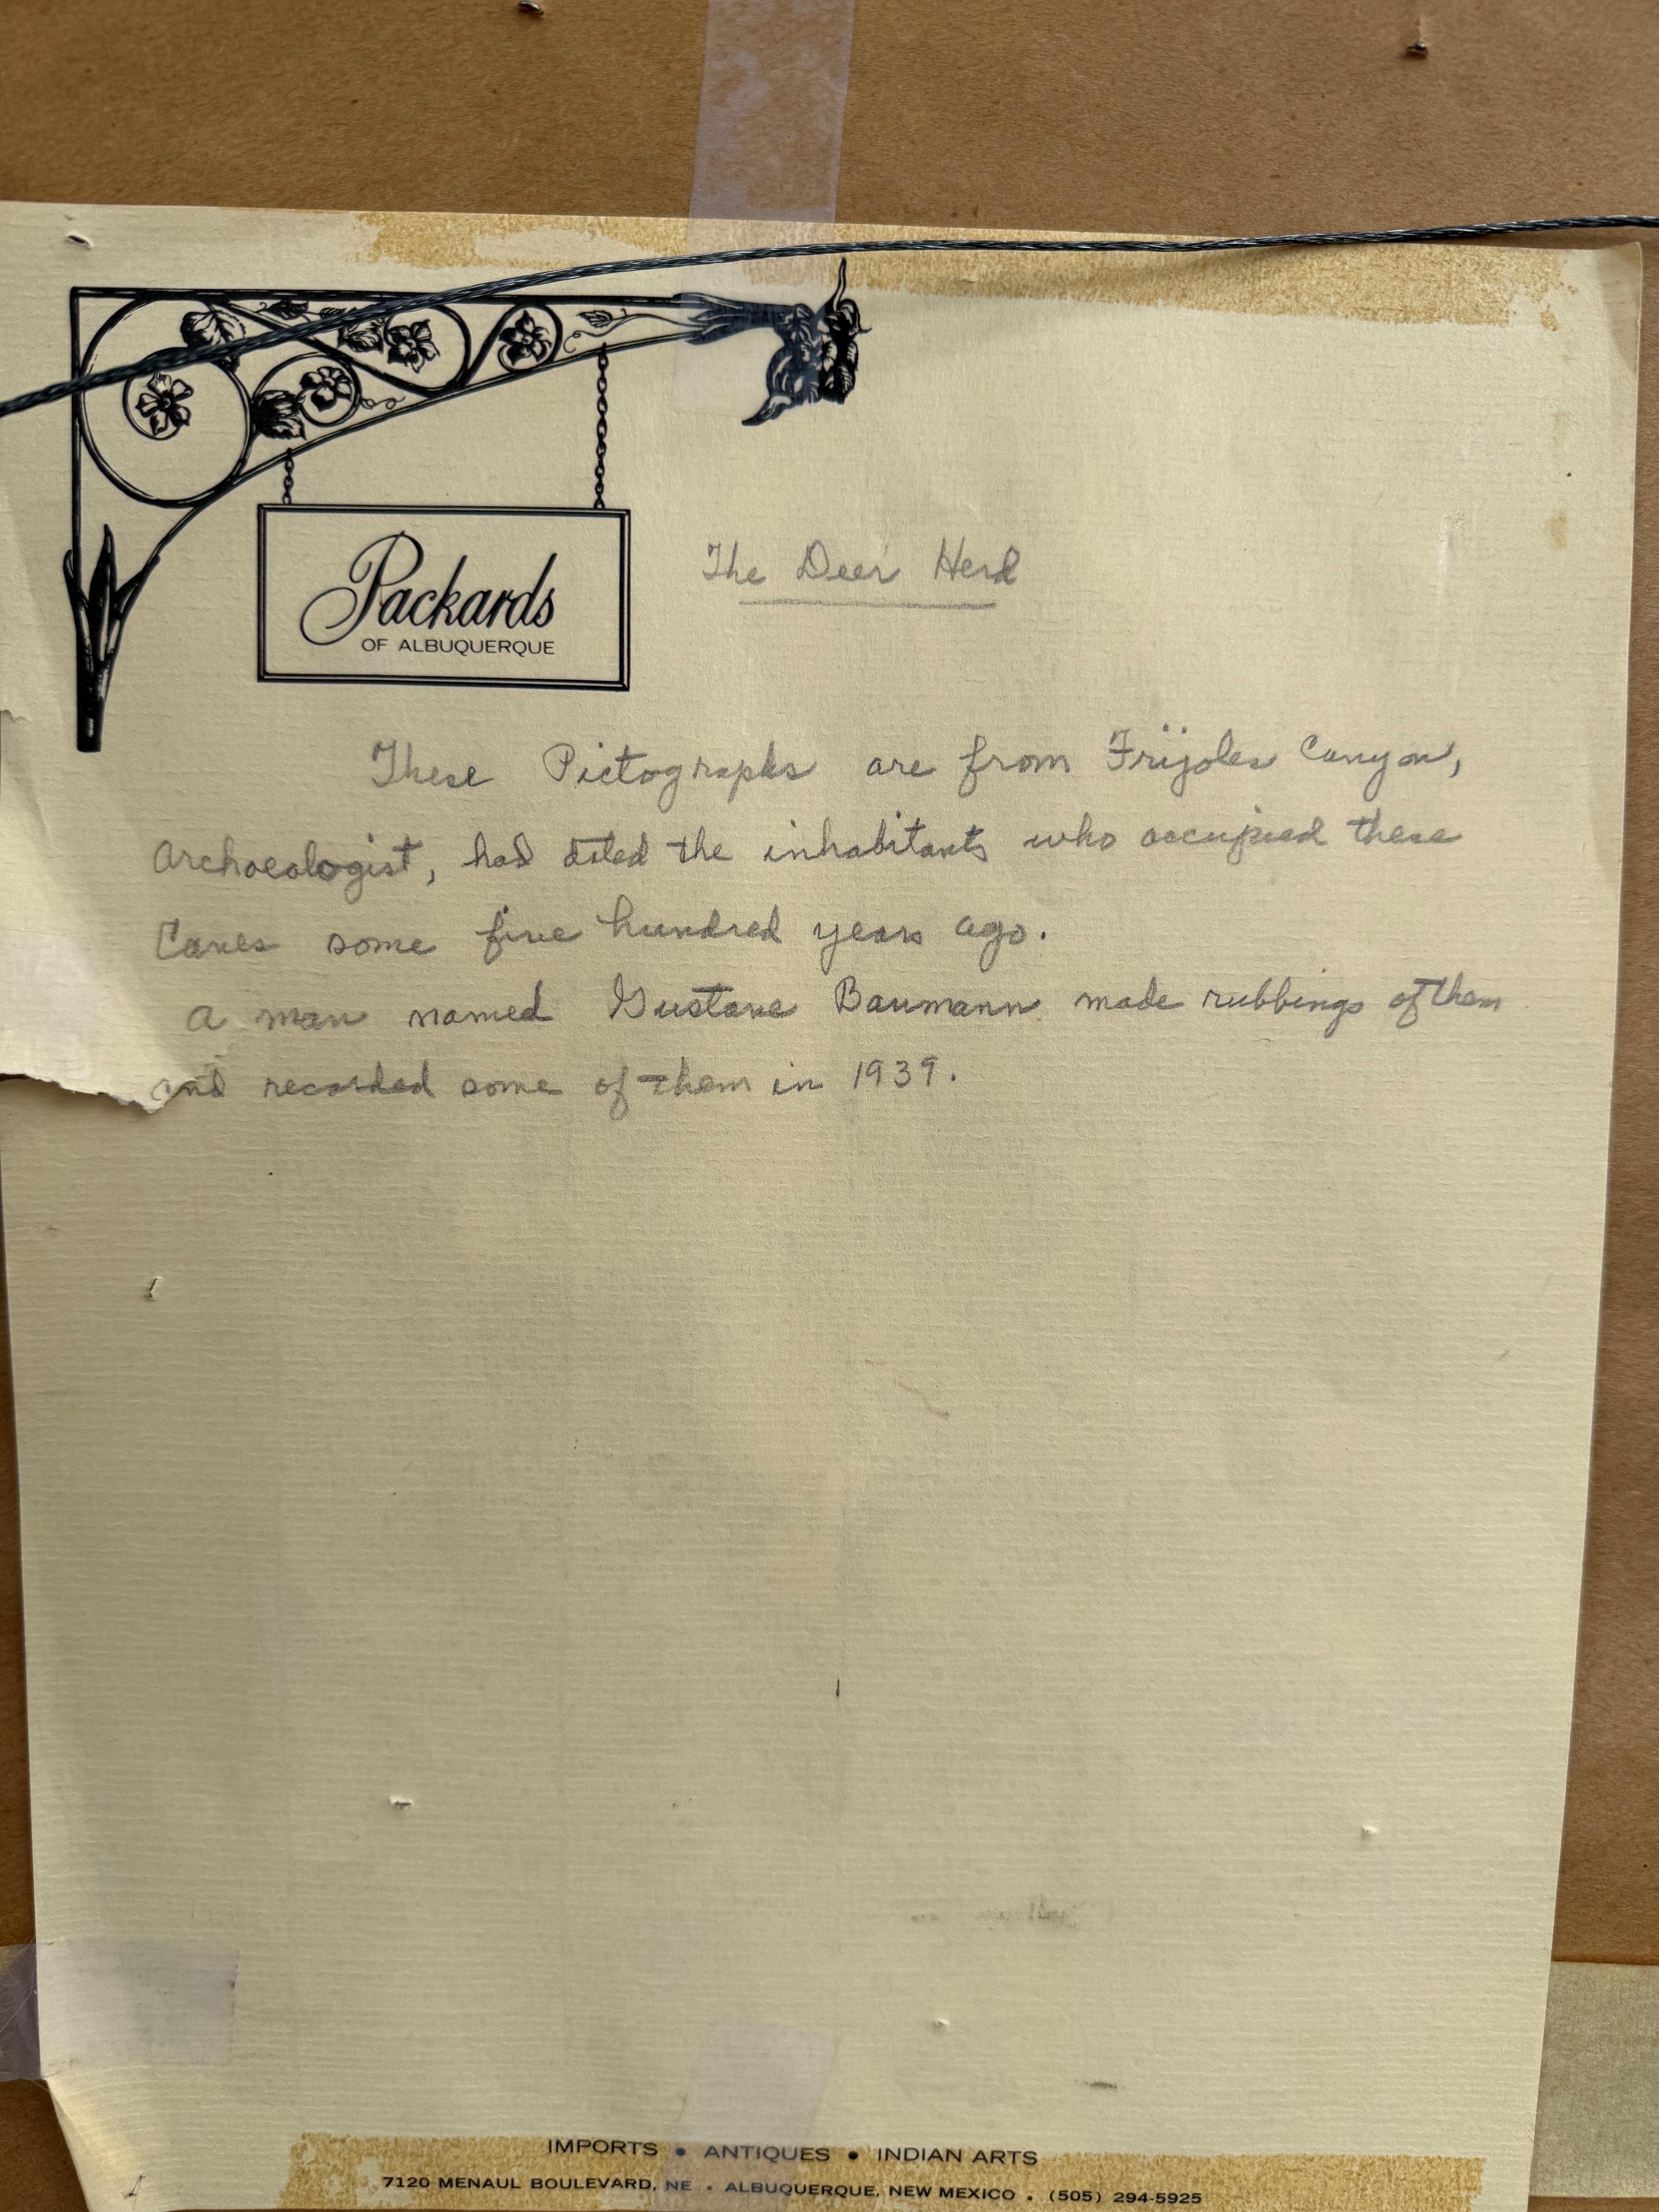 Packards
OF ALBUQUERQUE
The Deer Herd
These Pictographs are from Frijoles Canyon,
Archaeologist, had dated the inhabitants who occupied these
Caves some five hundred years ago.
A man named Gustave Baumann made rubbings of them
and recorded some of them in 1939.
IMPORTS • ANTIQUES • INDIAN ARTS
7120 MENAUL BOULEVARD, NE • ALBUQUERQUE, NEW MEXICO • (505) 294-5925